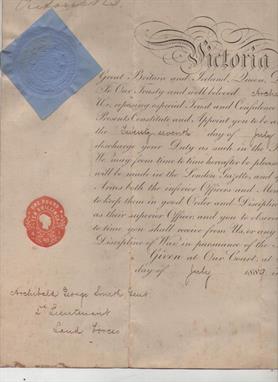 Victoria
Great Britain and Ireland, Queen,
To Our Trusty and well beloved
We, reposing especial Trust and Confidence
Presents Constitute and Appoint you to be a
the Twenty seventh day of July
discharge your Duty as such in the
We may from time to time hereafter be pleased
will be made in the London Gazette, and
Arms both the inferior Officers and
to keep them in good Order and Discipline
as their superior Officer and you to observe
to time you shall receive from Us, or any
Discipline of War, in pursuance of the
Given at Our Court, at
day of July 1883
Archibald George Smith Gent
Lt Lieutenant
Land Forces